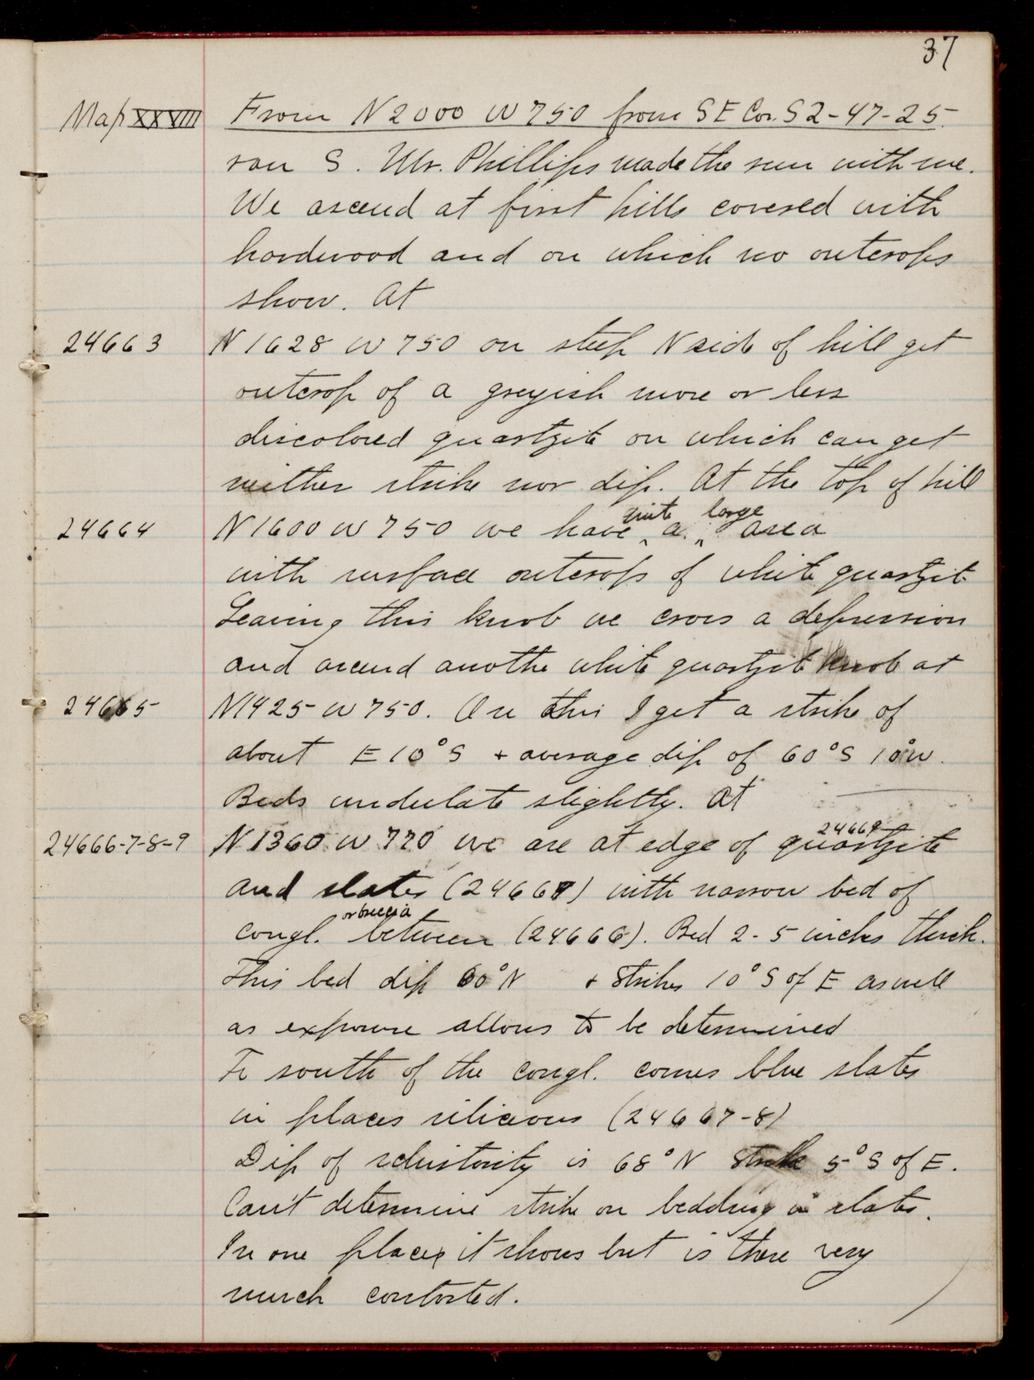 37
Map XXVIII From N 2000 W 750 from SE Cor. S 2-47-25
ran S. Mr. Phillips made the run with me.
We ascend at first hills covered with
hardwood and on which no outcrops
show. At
24663 N 1628 W 750 on steep N side of hill get
outcrop of a greyish more or less
discolored quartzite on which can get
neither strike nor dip. At the top of hill
24664 N 1600 W 750 we have quite a large area
with surface outcrops of white quartzite
Leaving this knob we cross a depression
and ascend anothe white quartzite knob at
24665 N 1425 W 750. On this I get a strike of
about E 10° S + average dip of 60° S 10° W.
Beds undulate slightly. At
24666-7-8-9 N 1360 W 770 we are at edge of quartzite 24669
and slates (24667) with narrow bed of
congl. or breccia between (24666). Bed 2-5 inches thick.
This bed dip 60° N + strikes 10° S of E as well
as exposure allows to be determined
To south of the congl. comes blue slates
in places silicious (24667-8)
Dip of schistosity is 68° N strike 5° S of E.
Can't determine strike or bedding in slates.
In one place it shows but is there very
much contorted.